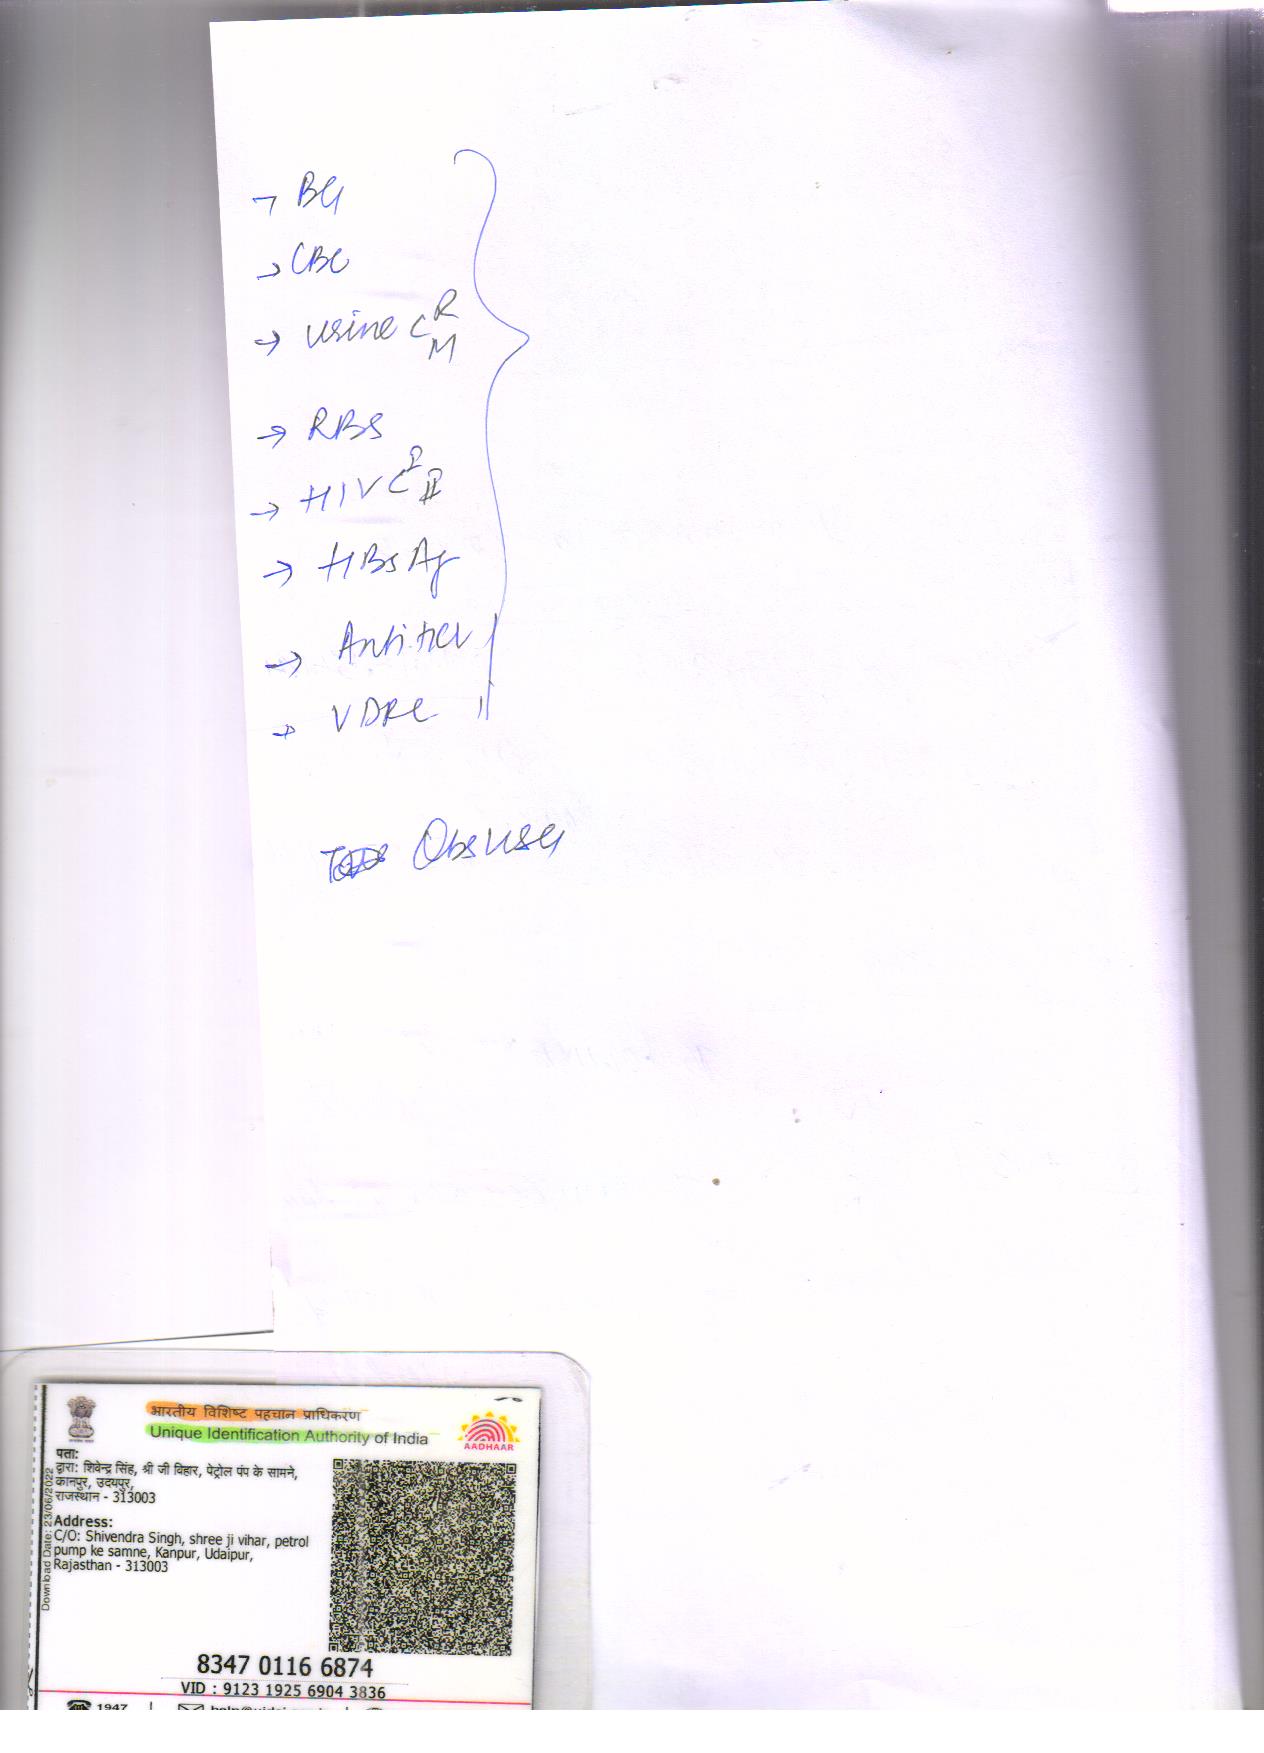 → BG
→ CBC
→ Urine C R M
→ RBS
→ HIV C I II
→ HBsAg
→ Anti HCV
→ VDRL
Obs USG
भारतीय विशिष्ट पहचान प्राधिकरण
Unique Identification Authority of India
AADHAAR
पता:
द्वारा: शिवेन्द्र सिंह, श्री जी विहार, पेट्रोल पंप के सामने,
कानपुर, उदयपुर,
राजस्थान - 313003
Address:
C/O: Shivendra Singh, shree ji vihar, petrol
pump ke samne, Kanpur, Udaipur,
Rajasthan - 313003
Download Date: 23/06/2022
8347 0116 6874
VID : 9123 1925 6904 3836
1947